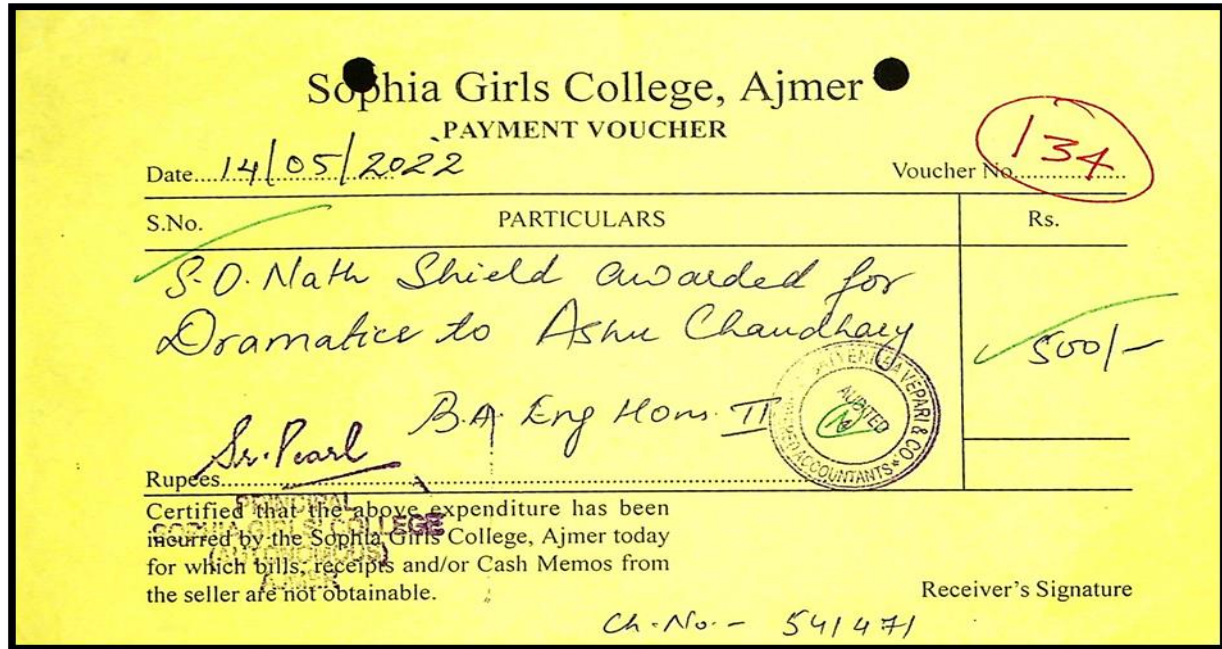 Sophia Girls College, Ajmer
PAYMENT VOUCHER
Date....14/05/2022 Voucher No. 134
S.No. PARTICULARS Rs.
S.D. Nath Shield awarded for
Dramatics to Ashu Chaudhary 500/-
B.A. Eng Hons. II
AUDITED
VEPARI & CO
ACCOUNTANTS
Sr. Pearl
Rupees
PRINCIPAL
SOPHIA GIRLS' COLLEGE
(AUTONOMOUS)
AJMER
Certified that the above expenditure has been
incurred by the Sophia Girls College, Ajmer today
for which bills, receipts and/or Cash Memos from
the seller are not obtainable. Receiver's Signature
Ch. No. - 541471